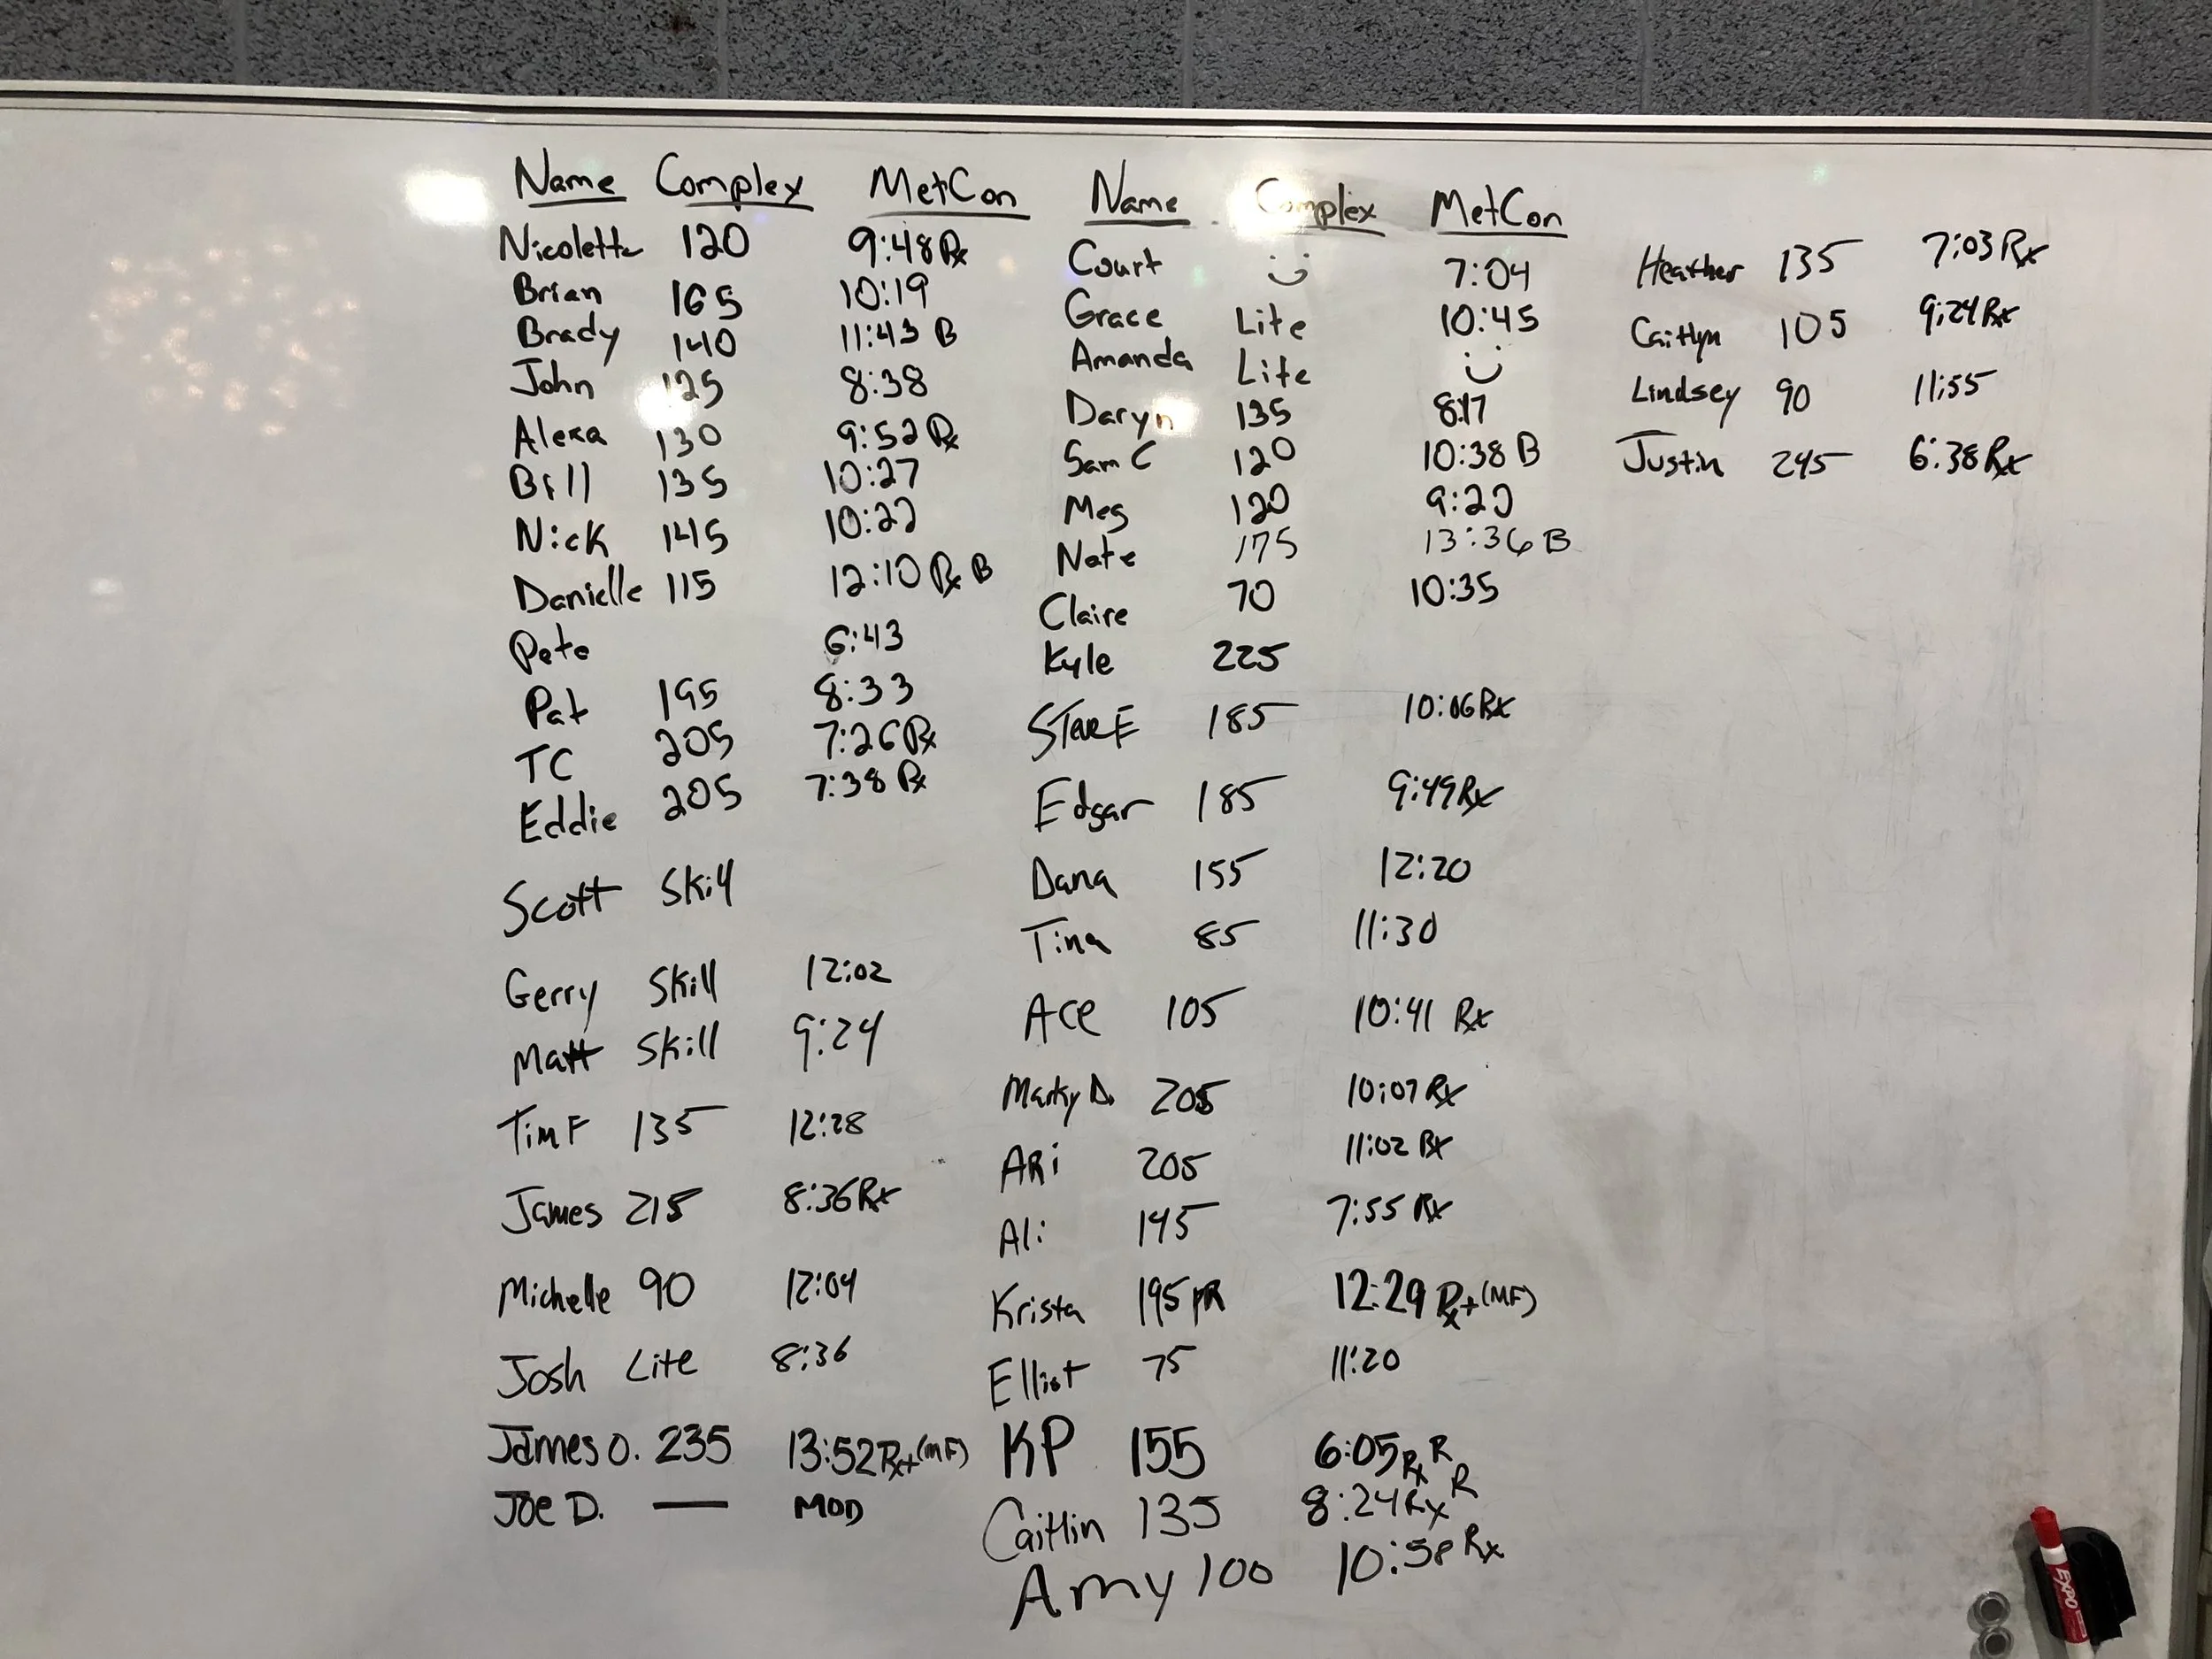 Name Complex MetCon
Nicolette 120 9:48 Rx
Brian 165 10:19
Brady 140 11:43 B
John 125 8:38
Alexa 130 9:52 Rx
Bill 135 10:27
Nick 145 10:22
Danielle 115 12:10 Rx B
Pete 6:43
Pat 195 8:33
TC 205 7:26 Rx
Eddie 205 7:38 Rx
Scott Skill
Gerry Skill 12:02
Matt Skill 9:24
Tim F 135 12:28
James 215 8:36 Rx
Michelle 90 12:04
Josh Lite 8:36
James O. 235 13:52 Rx+ (MF)
Joe D. — MOD
Name Complex MetCon
Court :) 7:04
Grace Lite 10:45
Amanda Lite :)
Daryn 135 8:17
Sam C 120 10:38 B
Meg 120 9:20
Nate 175 13:36 B
Claire 70 10:35
Kyle 225
185 10:06 Rx
Edgar 185 9:49 Rx
Dana 155 12:20
Tina 85 11:30
Ace 105 10:41 Rx
Marky D. 205 10:07 Rx
ARi 205 11:02 Rx
Ali 145 7:55 Rx
Krista 195 PR 12:29 Rx+ (MF)
Elliot 75 11:20
KP 155 6:05 Rx R
Caitlin 135 8:24 Rx R
Amy 100 10:58 Rx
Heather 135 7:03 Rx
Caitlyn 105 9:24 Rx
Lindsey 90 11:55
Justin 245 6:38 Rx
EXPO